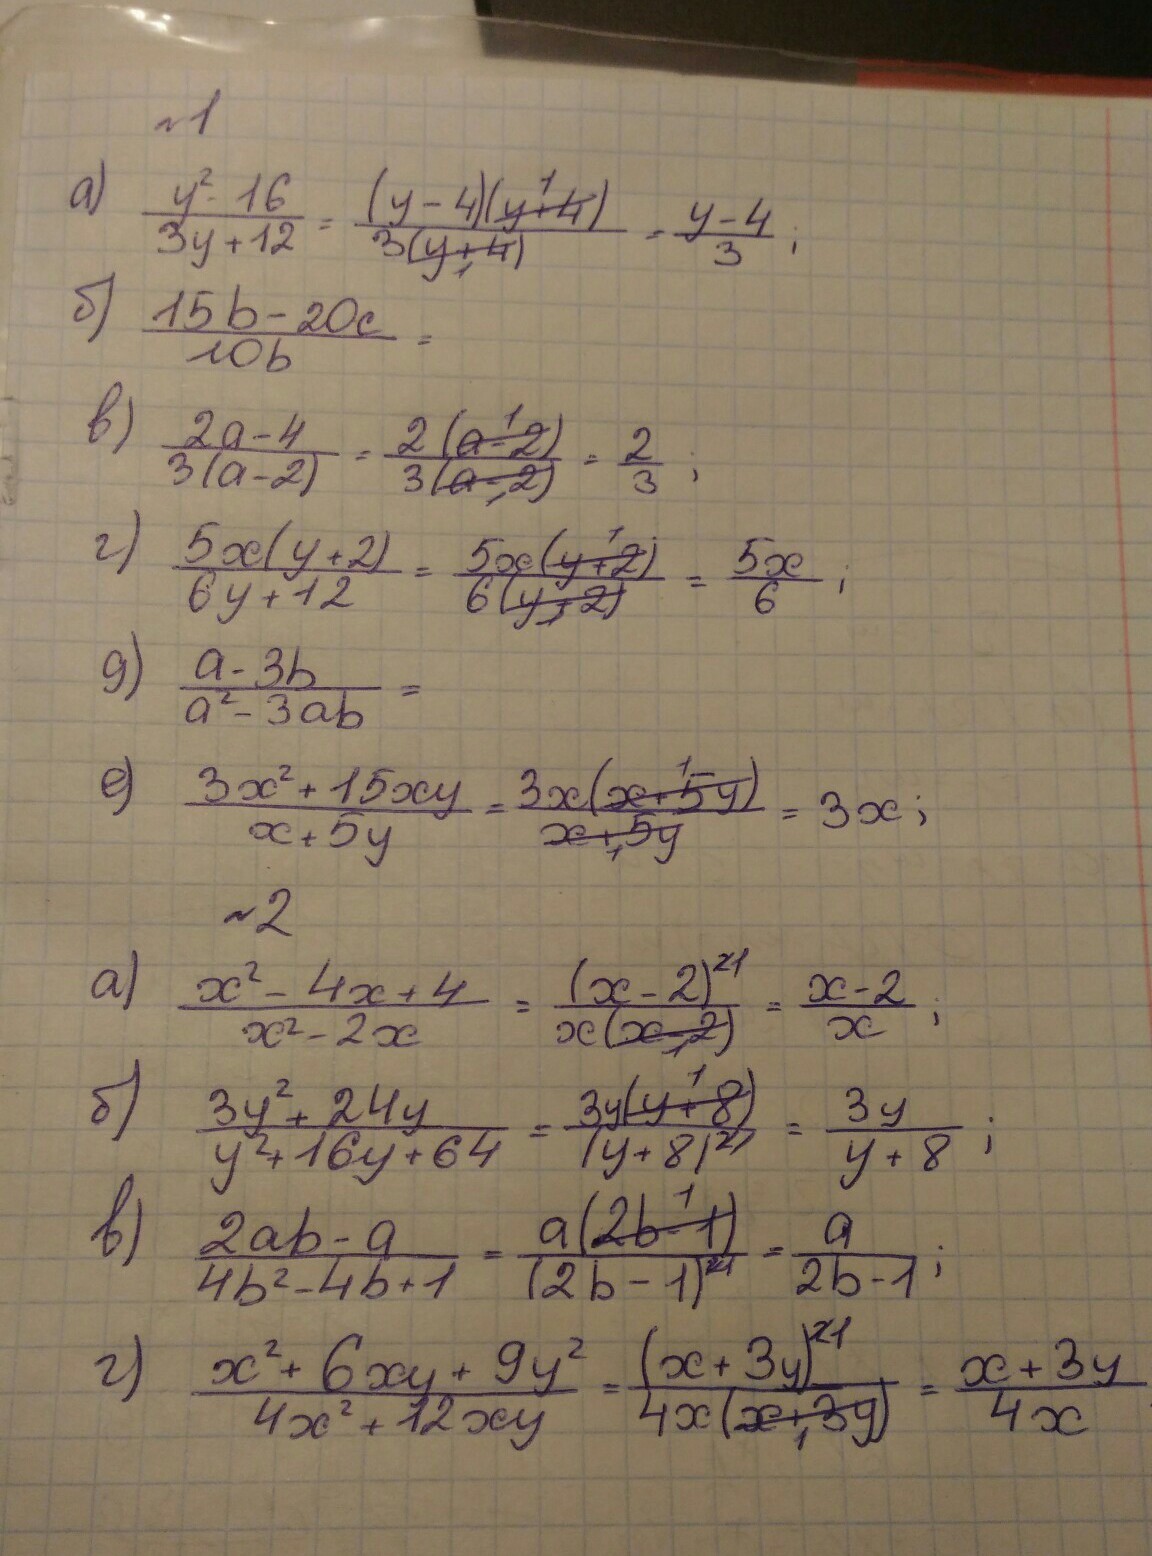 ~1
а) (y² - 16)/(3y + 12) = ((y - 4)(y + 4)¹)/(3(y + 4)₁) = (y - 4)/3 ;
б) (15b - 20c)/(10b) =
в) (2a - 4)/(3(a - 2)) = (2(a - 2)¹)/(3(a - 2)₁) = 2/3 ;
г) (5x(y + 2))/(6y + 12) = (5x(y + 2)¹)/(6(y + 2)₁) = 5x/6 ;
д) (a - 3b)/(a² - 3ab) =
е) (3x² + 15xy)/(x + 5y) = (3x(x + 5y)¹)/(x + 5y)₁ = 3x ;
~2
а) (x² - 4x + 4)/(x² - 2x) = (x - 2)²¹/(x(x - 2)₁) = (x - 2)/x ;
б) (3y² + 24y)/(y² + 16y + 64) = (3y(y + 8)¹)/(y + 8)²¹ = 3y/(y + 8) ;
в) (2ab - a)/(4b² - 4b + 1) = (a(2b - 1)¹)/(2b - 1)²¹ = a/(2b - 1) ;
г) (x² + 6xy + 9y²)/(4x² + 12xy) = (x + 3y)²¹/(4x(x + 3y)₁) = (x + 3y)/(4x)